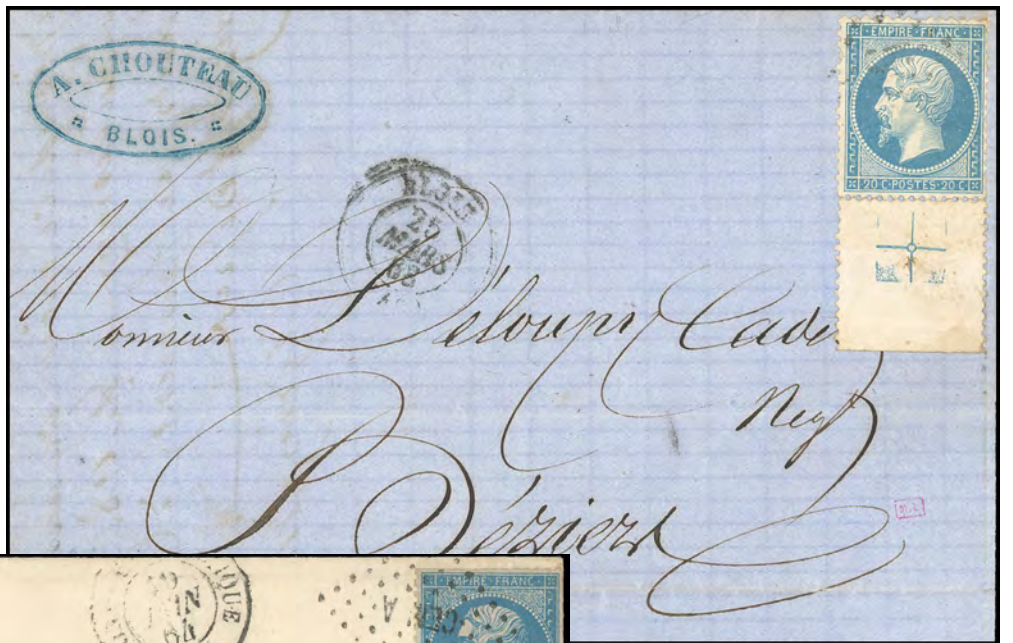 A. CHOUTEAU
BLOIS.
EMPIRE FRANC
20 C POSTES 20 C
BLOIS
25
MARS
63
Monsieur Deloupy Cadet
Negt
Béziers
EMPIRE FRANC
JUIN
64